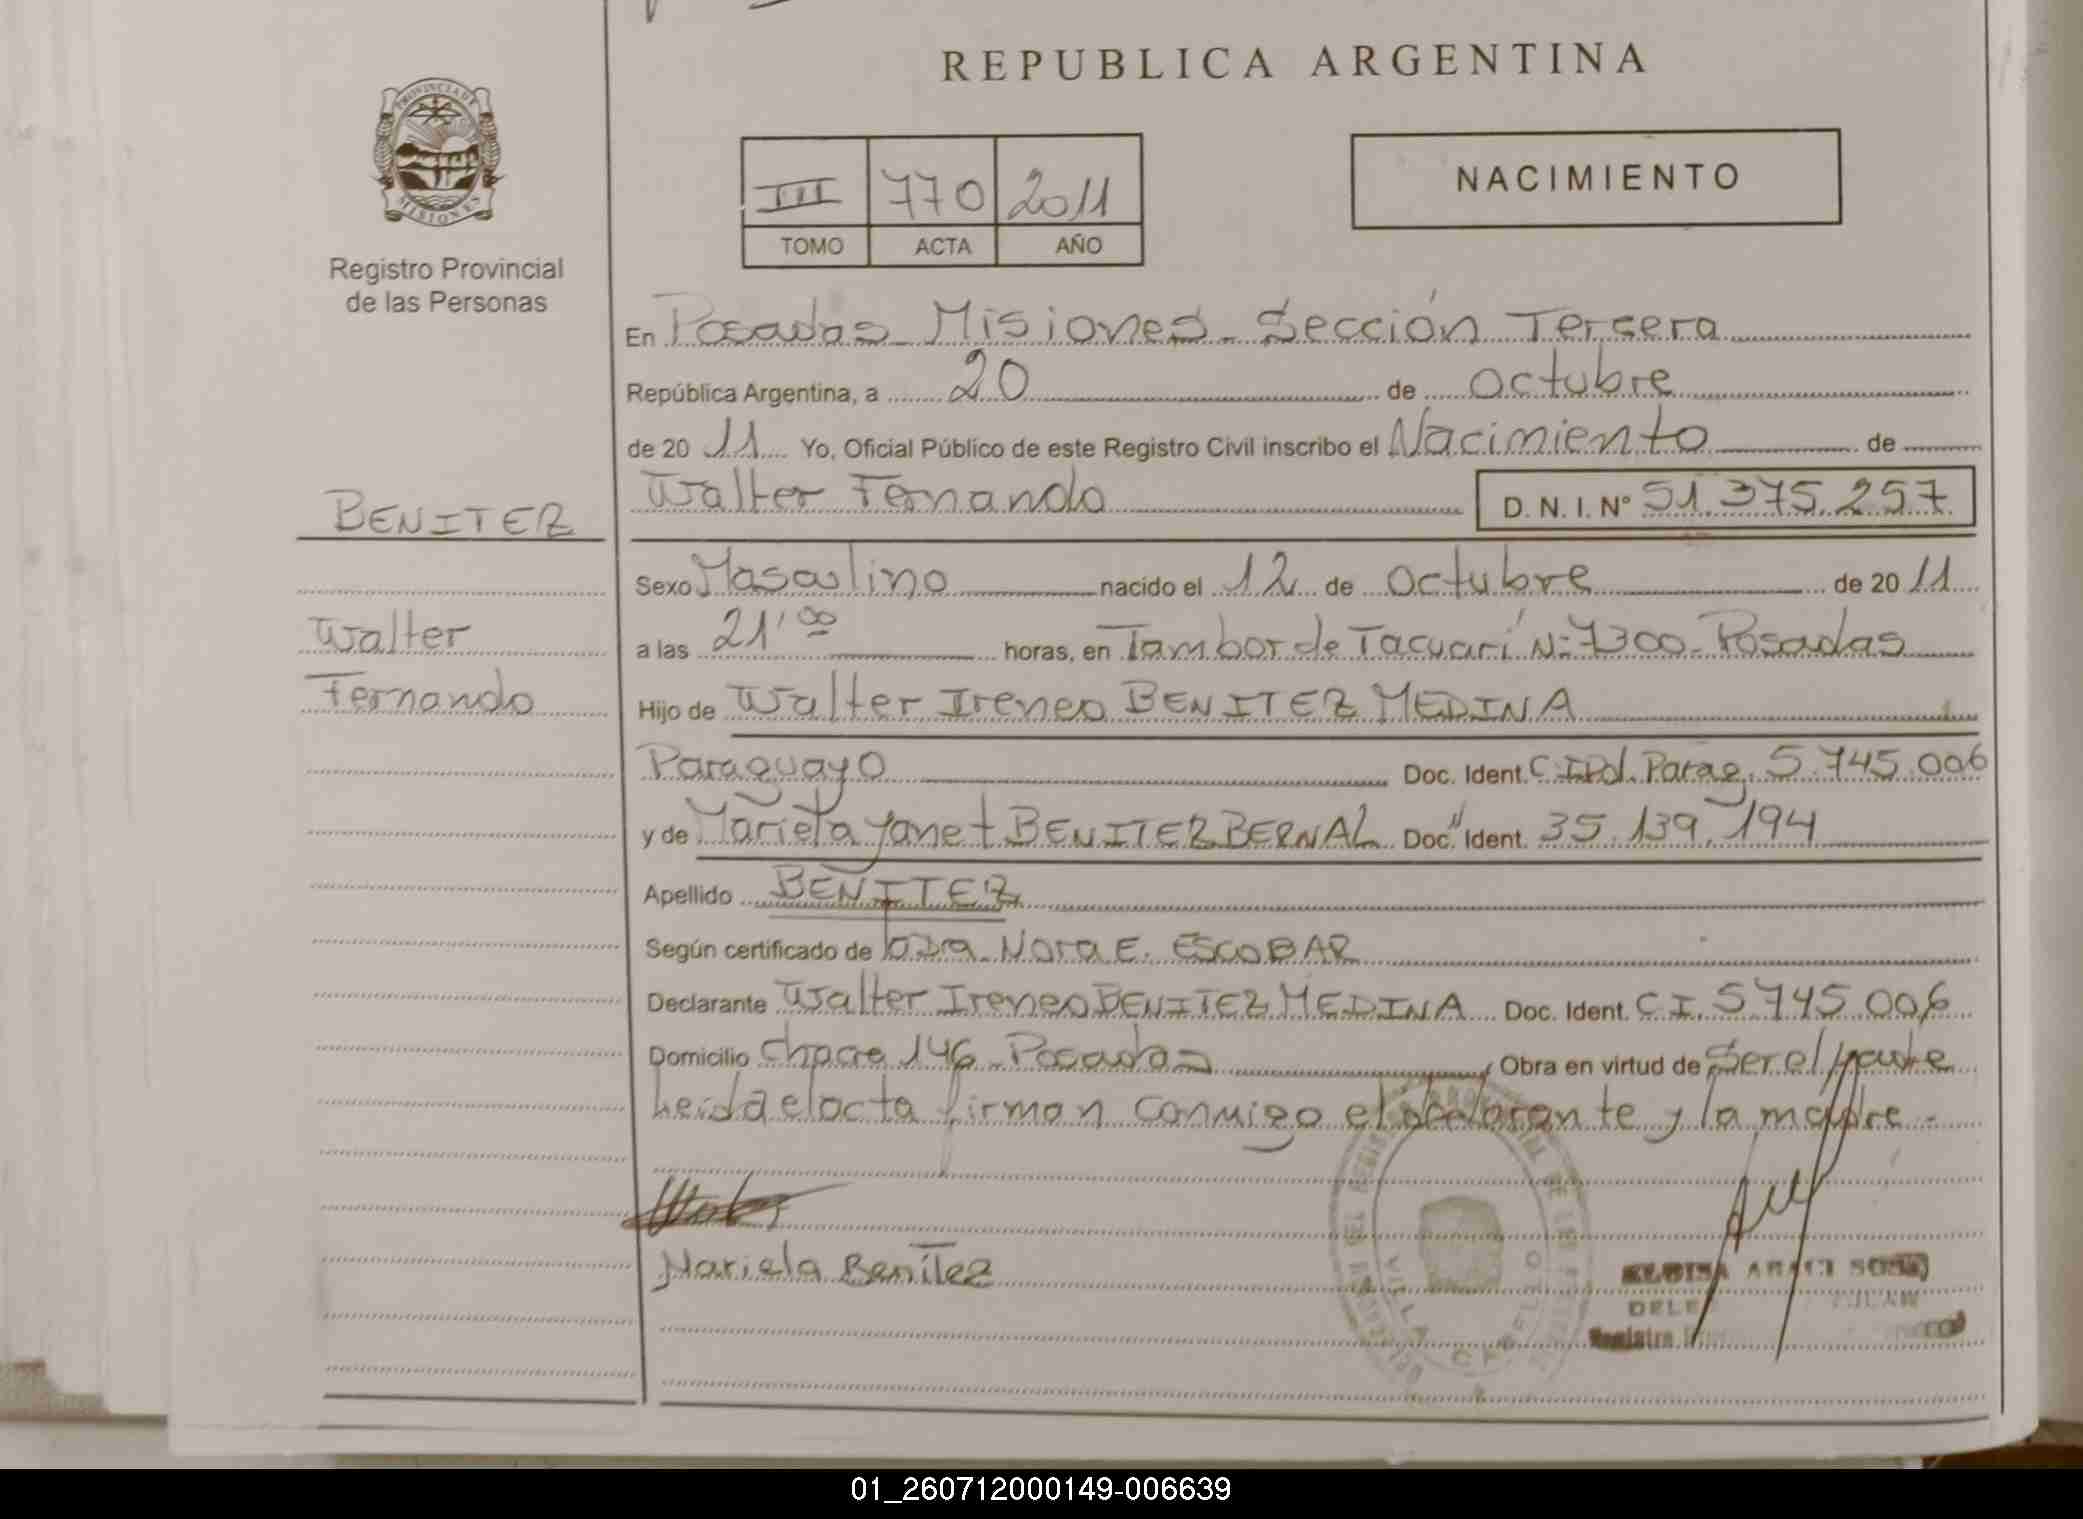 REPUBLICA ARGENTINA
PROVINCIA DE
MISIONES
Registro Provincial
de las Personas
III 770 2011
TOMO ACTA AÑO
NACIMIENTO
En Posadas Misiones - Sección Tercera
República Argentina, a 20 de Octubre
de 20 11 Yo, Oficial Público de este Registro Civil inscribo el Nacimiento de
BENITEZ
Walter Fernando D. N. I. Nº 51.375.257
Sexo Masculino nacido el 12 de Octubre de 20 11
Walter
a las 21'00 horas, en Tambor de Tacuarí Nº 7300 - Posadas
Fernando
Hijo de Walter Ireneo BENITEZ MEDINA
Paraguayo Doc. Ident. C I Pol. Parag. 5.745.006
y de Mariela Yanet BENITEZ BERNAL Doc. Ident. 35.139.194
Apellido BENITEZ
Según certificado de Dra. Nora E. ESCOBAR
Declarante Walter Ireneo BENITEZ MEDINA Doc. Ident. C I. 5745.006
Domicilio Chacra 146 - Posadas, Obra en virtud de Ser el padre
Leída el acta firman conmigo el declarante y la madre -
Mariela Benítez
VILLA CABELLO
ELOISA ARACI SOSA
01_260712000149-006639